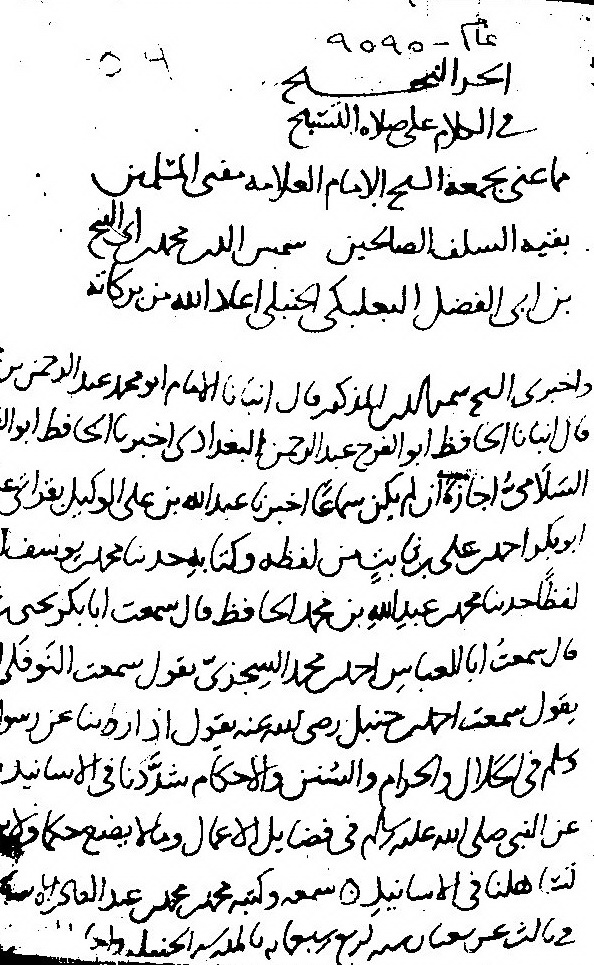 عام - ٩٥٩٥
٥٩
الجزء الثـ
في الكلام على صلاة التسبيح
مما عني بجمعه الشيخ الامام العلامة مفتي المسلمين
بقية السلف الصالحين شمس الدين محمد بن ابي الفتح
بن ابي الفضل البعلبكي الحنبلي اعاد الله من بركاته
واخبرني الشيخ شمس الدين المذكور قال انبانا الامام ابو محمد عبد الرحمن بن
قال انبانا الحافظ ابو الفرج عبد الرحمن البغدادي اخبرنا الحافظ ابو
السلامي اجازة ان لم يكن سماعا اخبرنا عبد الله بن علي الوكيل بقراتي
ابو بكر احمد بن علي بن ثابت من لفظه وكتابه حدثنا محمد بن يوسف
لفظا حدثنا محمد بن عبد الله بن محمد الحافظ قال سمعت ابا بكر يحيى
قال سمعت ابا العباس احمد بن محمد السجزي يقول سمعت النوفلي
يقول سمعت احمد بن حنبل رضي الله عنه يقول اذا روينا عن رسول
وسلم في الحلال والحرام والسنن والاحكام شددنا في الاسانيد
عن النبي صلى الله عليه وسلم في فضايل الاعمال وما لا يضع حكما ولا
تساهلنا في الاسانيد ٥ سمعه وكتبه محمد بن محمد بن عبد القادر
في ثالث عشر شعبان سنة اربع وسبعمايه بالمدرسة الحنبلية